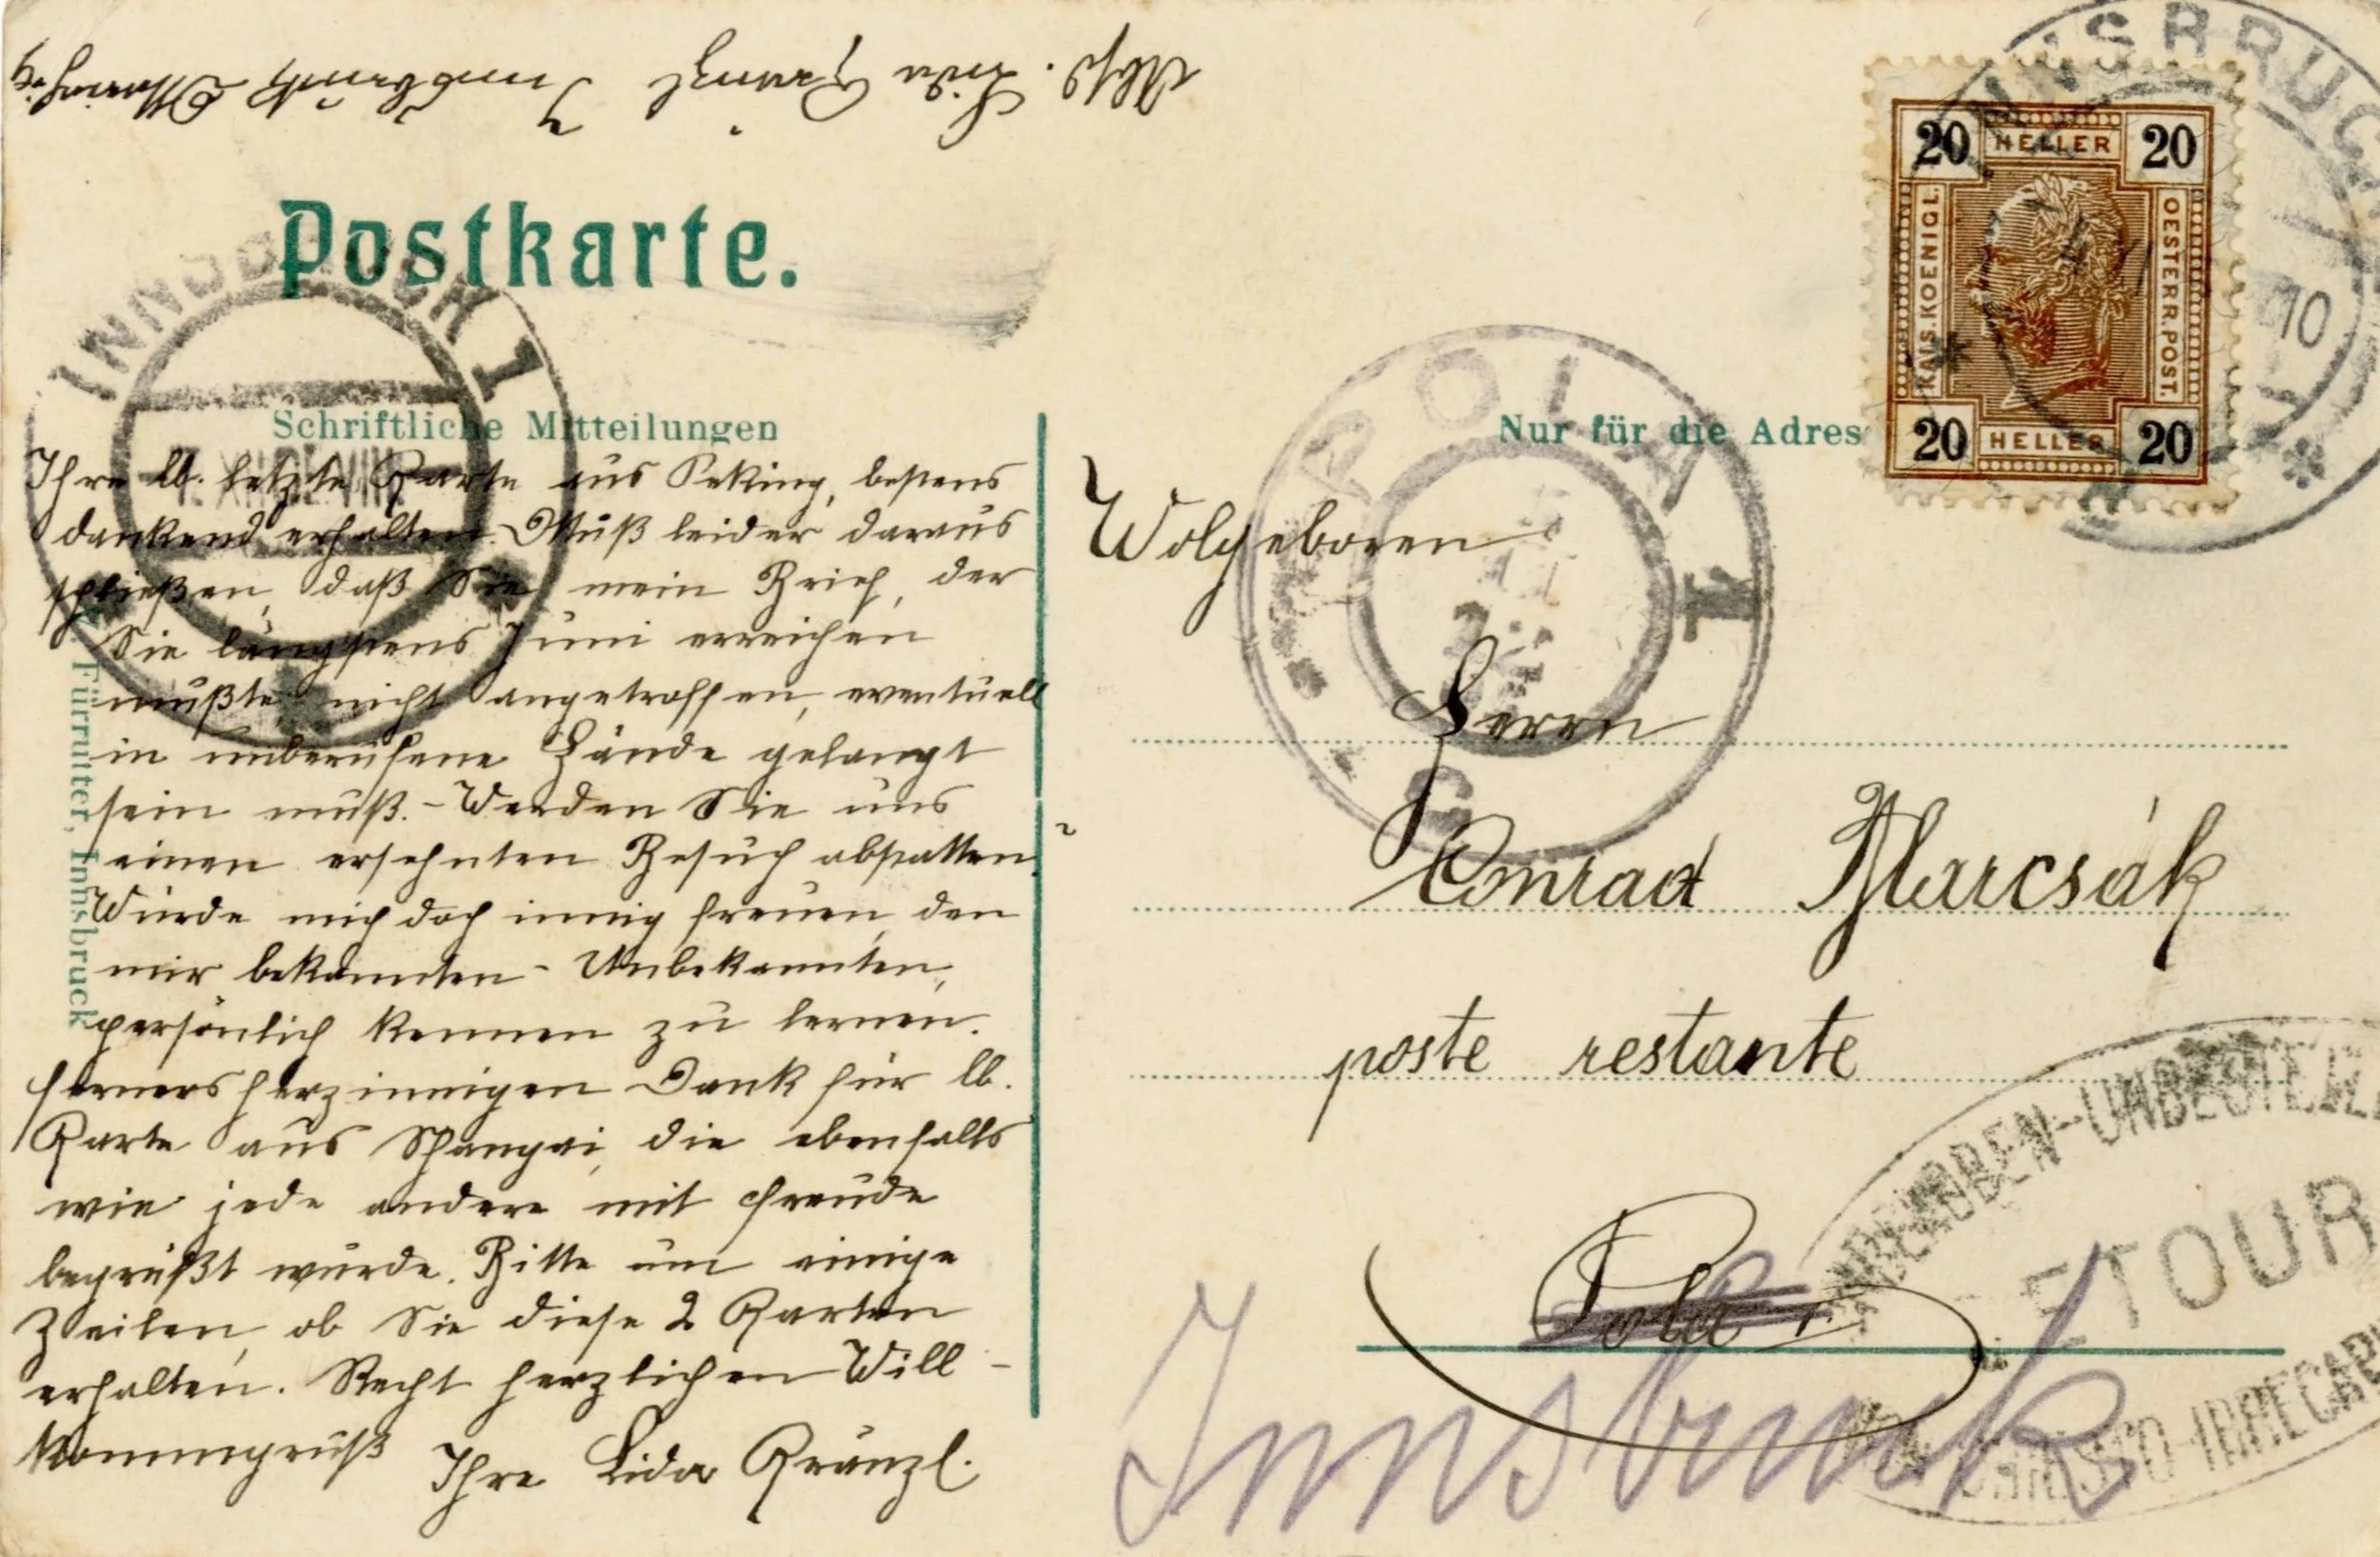 Absd. Lida Kränzl Innsbruck
Postkarte.
Schriftliche Mitteilungen
Ihre lb. letzte Karte aus Peking, bestens
dankend erhalten. Muß leider daraus
schließen, daß Sie mein Brief, der
Sie längstens Juni erreichen
müßte, nicht angetroffen, eventuell
in unberufene Hände gelangt
sein muß. - Werden Sie uns
einen ersehnten Besuch abstatten?
Würde mich doch innig freuen, den
mir bekannten - Unbekannten,
persönlich kennen zu lernen.
Ferners herzinnigen Dank für lb.
Karte aus Shangai, die ebenfalls
wie jede andere mit Freude
begrüßt wurde. Bitte um einige
Zeilen, ob Sie diese 2 Karten
erhalten. Recht herzlichen Will-
kommgruß Ihre Lida Kränzl.
Fürrutter, Innsbruck
INNSBRUCK 1
INNSBRUCK
10
20 HELLER 20
KAIS. KOENIGL.
OESTERR. POST.
20 HELLER 20
Nur für die Adres
POLA 1
Wolgeboren
Herrn
Conrad Marcsák
poste restante
Pola
Innsbruck
BEHOBEN-UNBESTELL
ETOUR